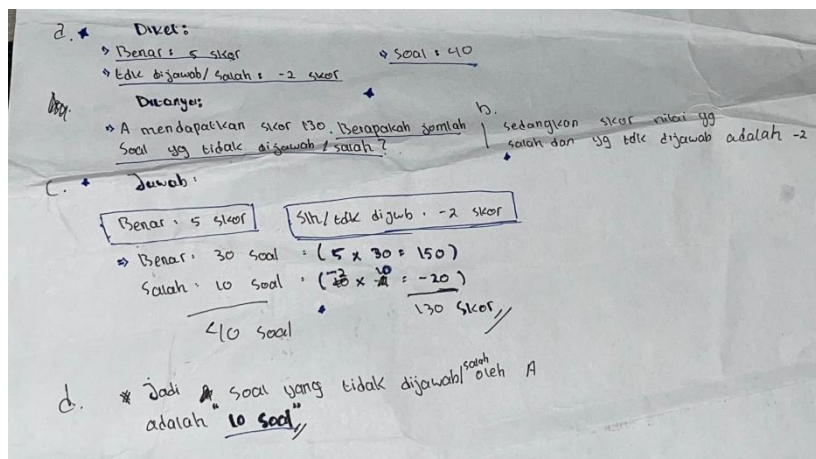 a. Diket:
Benar: 5 skor
soal: 40
tdk dijawab/salah: -2 skor
Ditanya:
A mendapatkan skor 130. Berapakah jomlah
Soal yg tidak dijawab/salah?
b.
sedangkan skor nilai yg
salah dan yg tdk dijawab adalah -2
C. Jawab:
Benar: 5 skor
Slh/tdk dijwb: -2 skor
⇒ Benar: 30 soal : (5 x 30 = 150)
Salah: 10 soal : (-2 x 10 = -20)
40 soal
130 skor
d. * Jadi soal yang tidak dijawab/salah oleh A
adalah "10 soal"